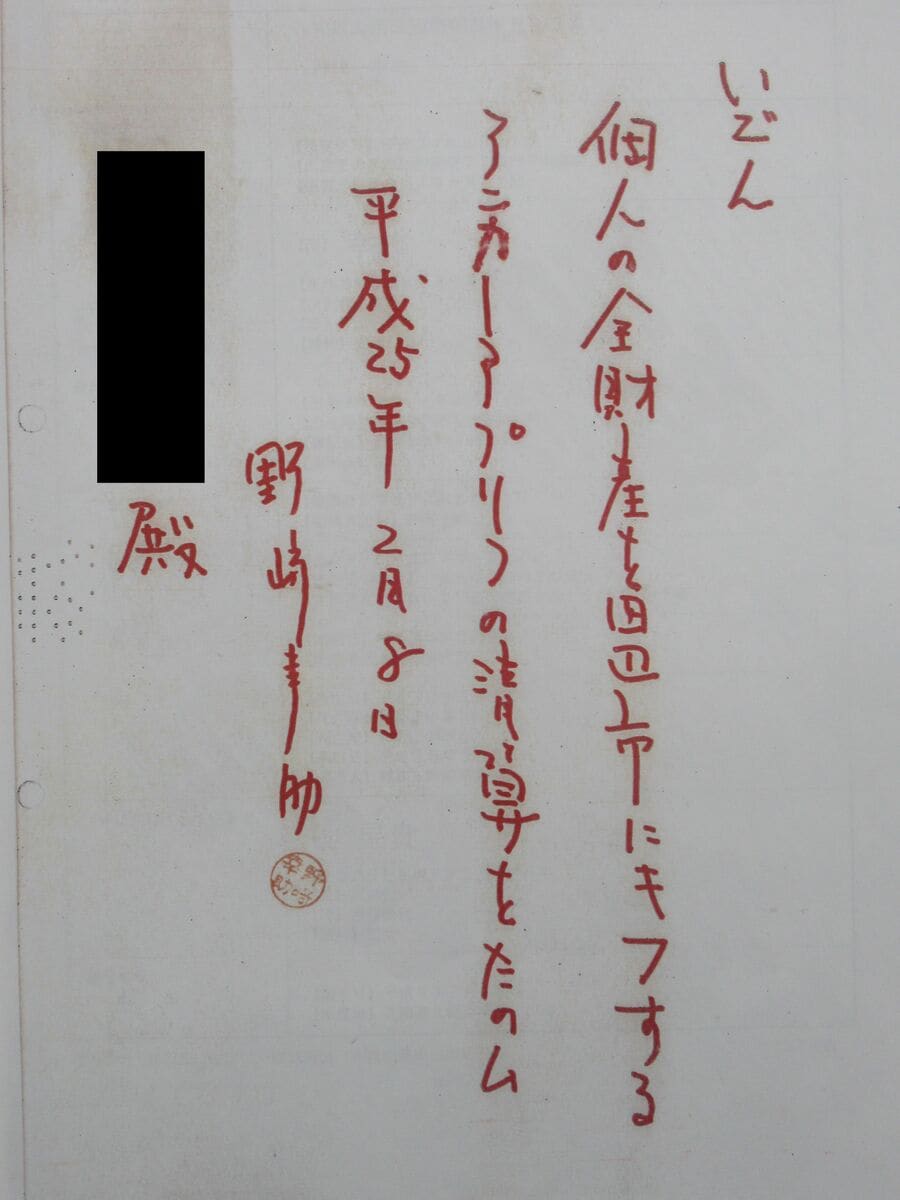 いごん
個人の全財産を田辺市にキフする
アンカーアプリコの清算をたのム
平成25年2月8日
野崎幸助
野崎幸助
殿